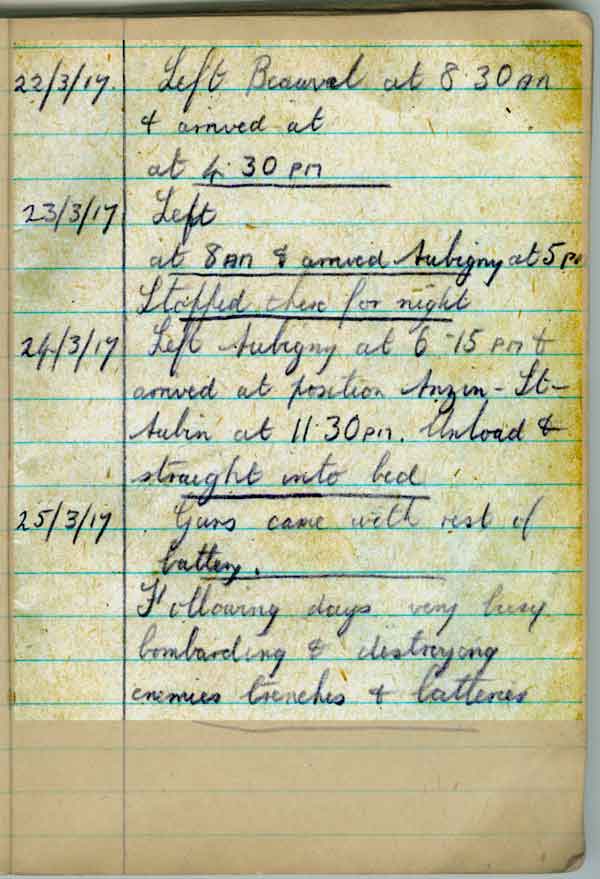 22/3/17. Left Beauval at 8 30 AM
& arrived at
at 4. 30 PM
23/3/17 Left
at 8 AM & arrived Aubigny at 5 PM
Stopped there for night
24/3/17 Left Aubigny at 6-15 PM &
arrived at position Anzin-St-
Aubin at 11 30 PM. Unload &
straight into bed
25/3/17 Guns came with rest of
battery.
Following days very busy
bombarding & destroying
enemies trenches & batteries